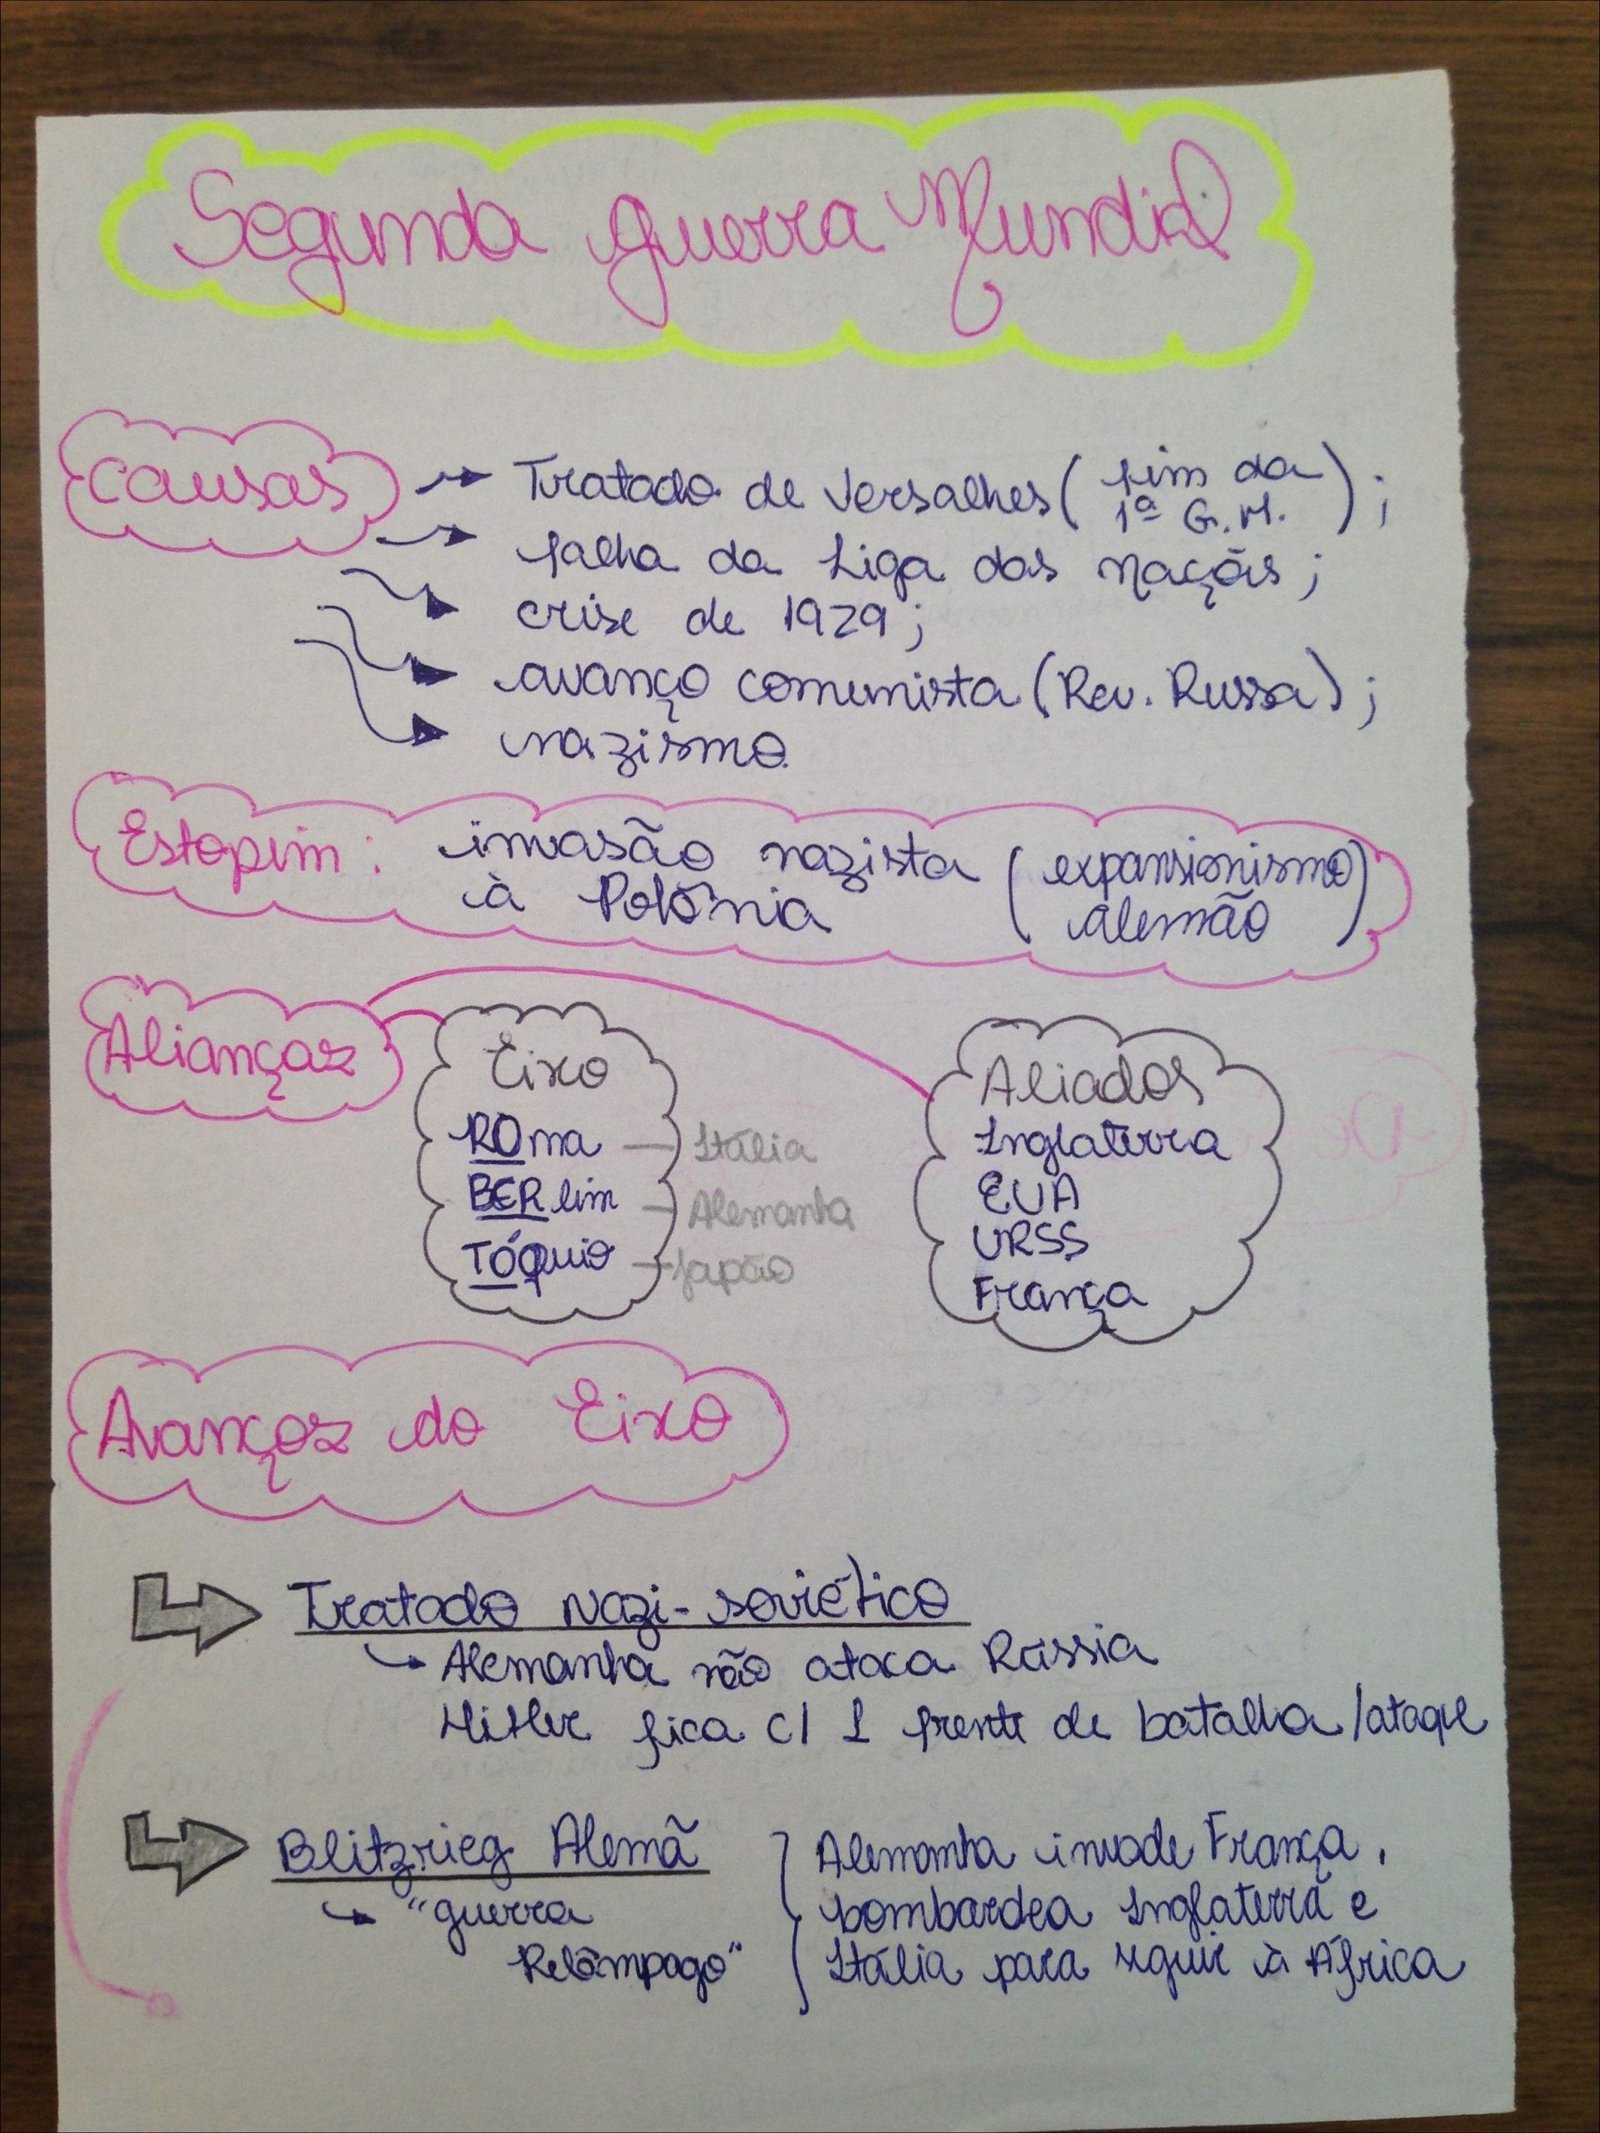 Segunda guerra Mundial
causas
Tratado de Versalhes ( fim da
1ª G.M. ) ;
falha da Liga das Nações ;
crise de 1929 ;
avanço comunista (Rev. Russa) ;
nazismo.
Estopim : invasão nazista ( expansionismo
à Polônia alemão )
Alianças
Eixo
ROma — Itália
BERlim — Alemanha
TÓquio — Japão
Aliados
Inglaterra
EUA
URSS
França
Avanços do Eixo
Tratado Nazi-soviético
Alemanha não ataca Rússia
Hitler fica c/ 1 frente de batalha/ataque
Blitzrieg Alemã
"guerra
Relâmpago"
Alemanha invade França,
bombardea Inglaterra e
Itália para seguir à África